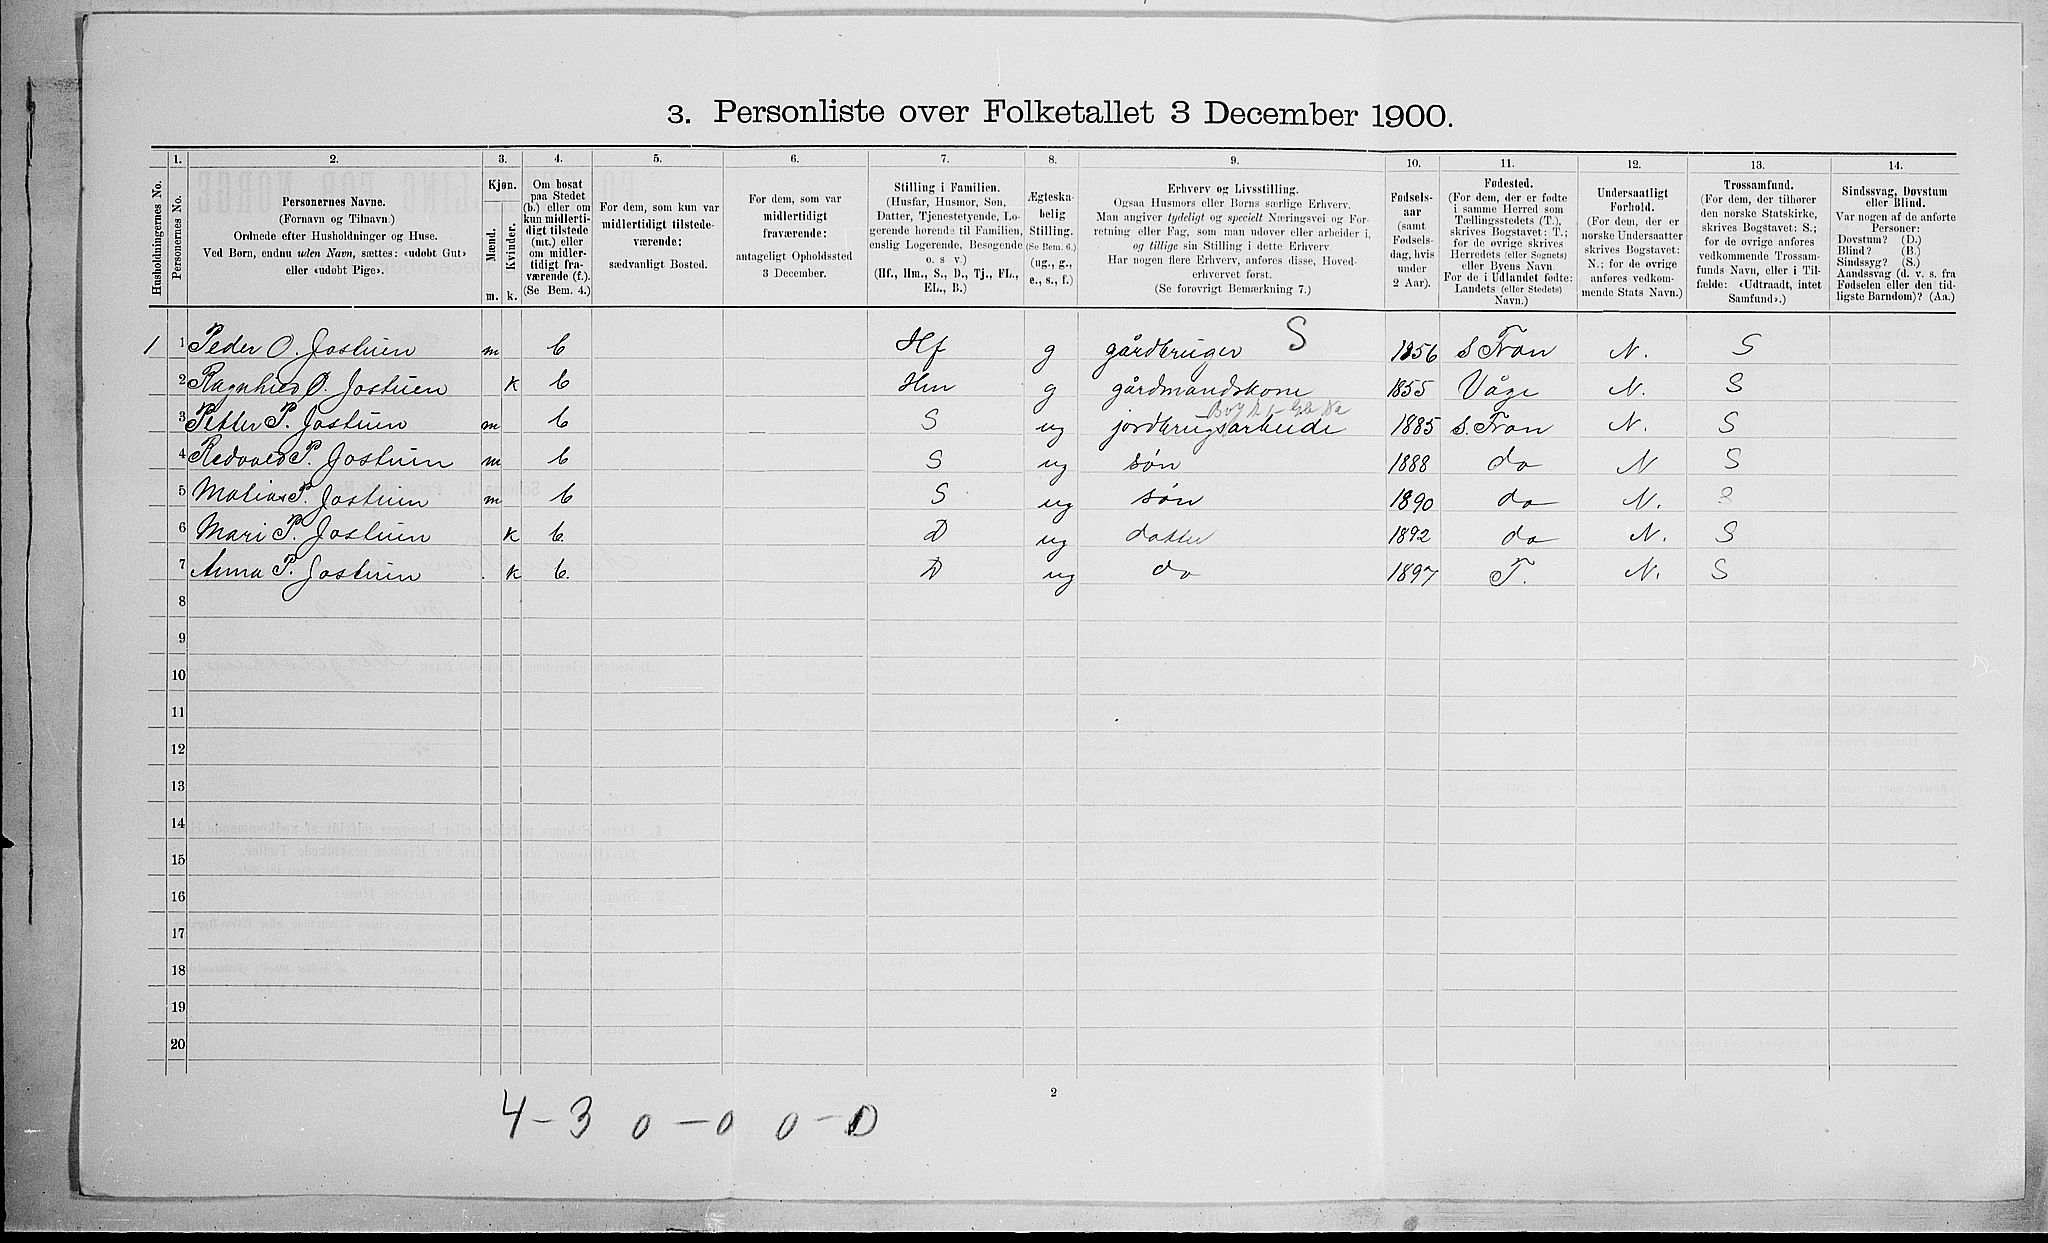 3. Personliste over Folketallet 3 December 1900.
1. 2. 3. 4. 5. 6. 7. 8. 9. 10. 11. 12. 13. 14.
Husholdningernes No.
Personernes No.
Personernes Navne.
(Fornavn og Tilnavn.)
Ordnede efter Husholdninger og Huse.
Ved Børn, endnu uden Navn, sættes: «udøbt Gut»
eller «udøbt Pige».
Kjøn.
Mænd.
Kvinder.
m. k.
Om bosat
paa Stedet
(b.) eller om
kun midlerti-
digt tilstede
(mt.) eller
om midler-
tidigt fra-
værende (f.).
(Se Bem. 4.)
For dem, som kun var
midlertidigt tilstede-
værende:
sædvanligt Bosted.
For dem, som var
midlertidigt
fraværende:
antageligt Opholdssted
3 December.
Stilling i Familien.
(Husfar, Husmor, Søn,
Datter, Tjenestetyende, Lo-
gerende hørende til Familien,
enslig Logerende, Besøgende
o. s v.)
(Hf., Hm., S., D., Tj., FL.,
EL., B.)
Ægteska-
belig
Stilling.
(Se Bem. 6.)
(ug., g.,
e., s., f.)
Erhverv og Livsstilling.
Ogsaa Husmors eller Børns særlige Erhverv.
Man angiver tydeligt og specielt Næringsvei og For-
retning eller Fag, som man udøver eller arbeider i,
og tillige sin Stilling i dette Erhverv.
Har nogen flere Erhverv, anføres disse, Hoved-
erhvervet først.
(Se forøvrigt Bemærkning 7.)
Fødsels-
aar
(samt
Fødsels-
dag, hvis
under
2 Aar).
Fødested.
(For dem, der er fødte
i samme Herred som
Tællingsstedets (T.),
skrives Bogstavet: T.;
for de øvrige skrives
Herredets (eller Sognets)
eller Byens Navn.
For de i Udlandet fødte:
Landets (eller Stedets)
Navn.)
Undersaatligt
Forhold.
(For dem, der er
norske Undersaatter
skrives Bogstavet:
N.; for de øvrige
anføres vedkom-
mende Stats Navn.)
Trossamfund.
(For dem, der tilhører
den norske Statskirke,
skrives Bogstavet: S.;
for de øvrige anføres
vedkommende Trossam-
funds Navn, eller i Til-
fælde: «Udtraadt, intet
Samfund».)
Sindssvag, Døvstum
eller Blind.
Var nogen af de anførte
Personer:
Døvstum? (D.)
Blind? (B.)
Sindssyg? (S.)
Aandssvag (d. v. s. fra
Fødselen eller den tid-
ligste Barndom)? (Aa.)
S
1 1 Peder O. Jostuen m b Hf g gårdbruger 1856 S Fron N. S
2 Ragnhild O. Jostuen k b Hm g gårdmandskone 1855 Våge N. S
3 Petter P. Jostuen m b S ug jordbrugsarbeide 1885 S. Fron N. S
4 Redvald P. Jostuen m b S ug søn 1888 do N S
5 Matias P. Jostuen m b S ug søn 1890 do N. S
6 Mari P. Jostuen k b. D ug datter 1892 do N. S
7 Anna P. Jostuen k b. D ug do 1897 T. N. S
8
9
10
11
12
13
14
15
16
17
18
19
20
2
4-3 0-0 0-0